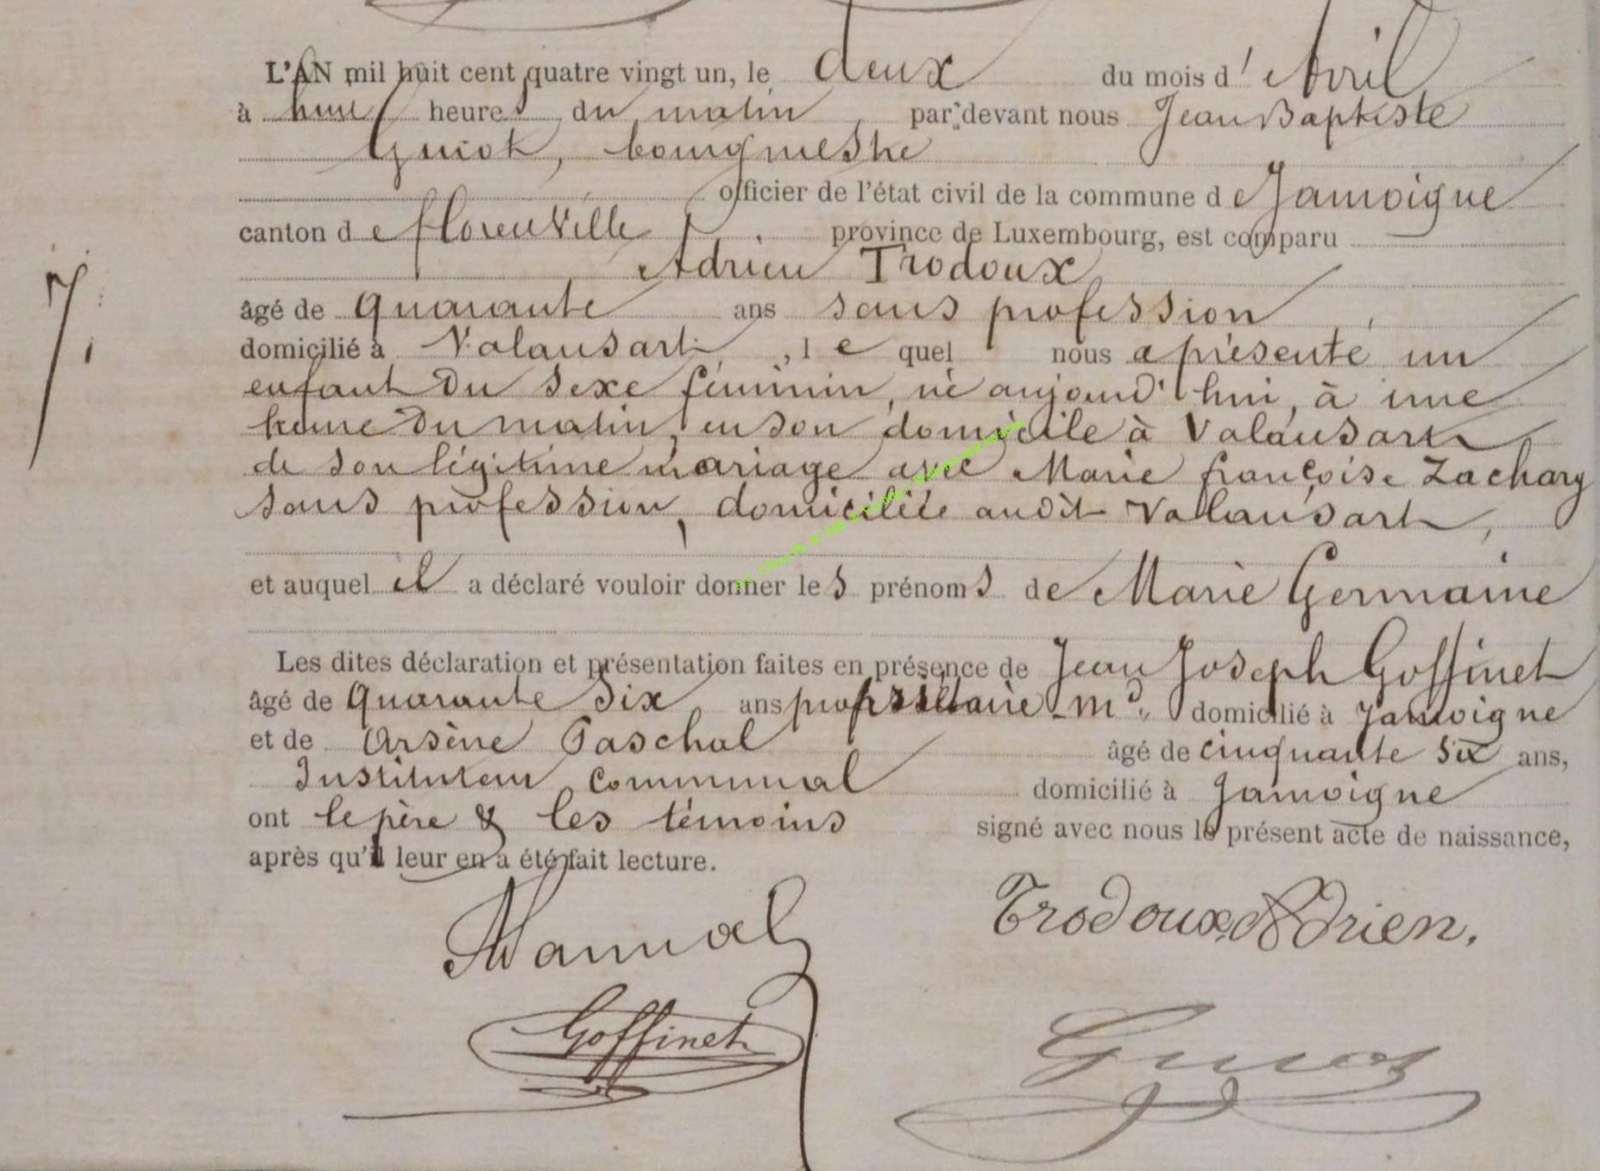 L'AN mil huit cent quatre vingt un, le deux du mois d'Avril
à huit heures du matin par-devant nous Jean Baptiste
Guiot, bourgmestre
officier de l'état civil de la commune de Jamoigne
canton de florenville province de Luxembourg, est comparu
Adrien Trodoux
7.
âgé de quarante ans sans profession
domicilié à Valansart, lequel nous a présenté un
enfant du sexe féminin, né aujourd'hui, à une
heure du matin, en son domicile à Valansart
de son légitime mariage avec Marie françoise Zachary
sans profession, domiciliée audit Valansart,
et auquel il a déclaré vouloir donner les prénoms de Marie Germaine
Les dites déclaration et présentation faites en présence de Jean Joseph Goffinet
âgé de quarante six ans propriétaire - md. domicilié à Jamoigne
et de Arsène Paschal âgé de cinquante six ans,
Instituteur communal domicilié à Jamoigne
ont le père & les témoins signé avec nous le présent acte de naissance,
après qu'il leur en a été fait lecture.
Trodoux Adrien.
Goffinet
Guiot